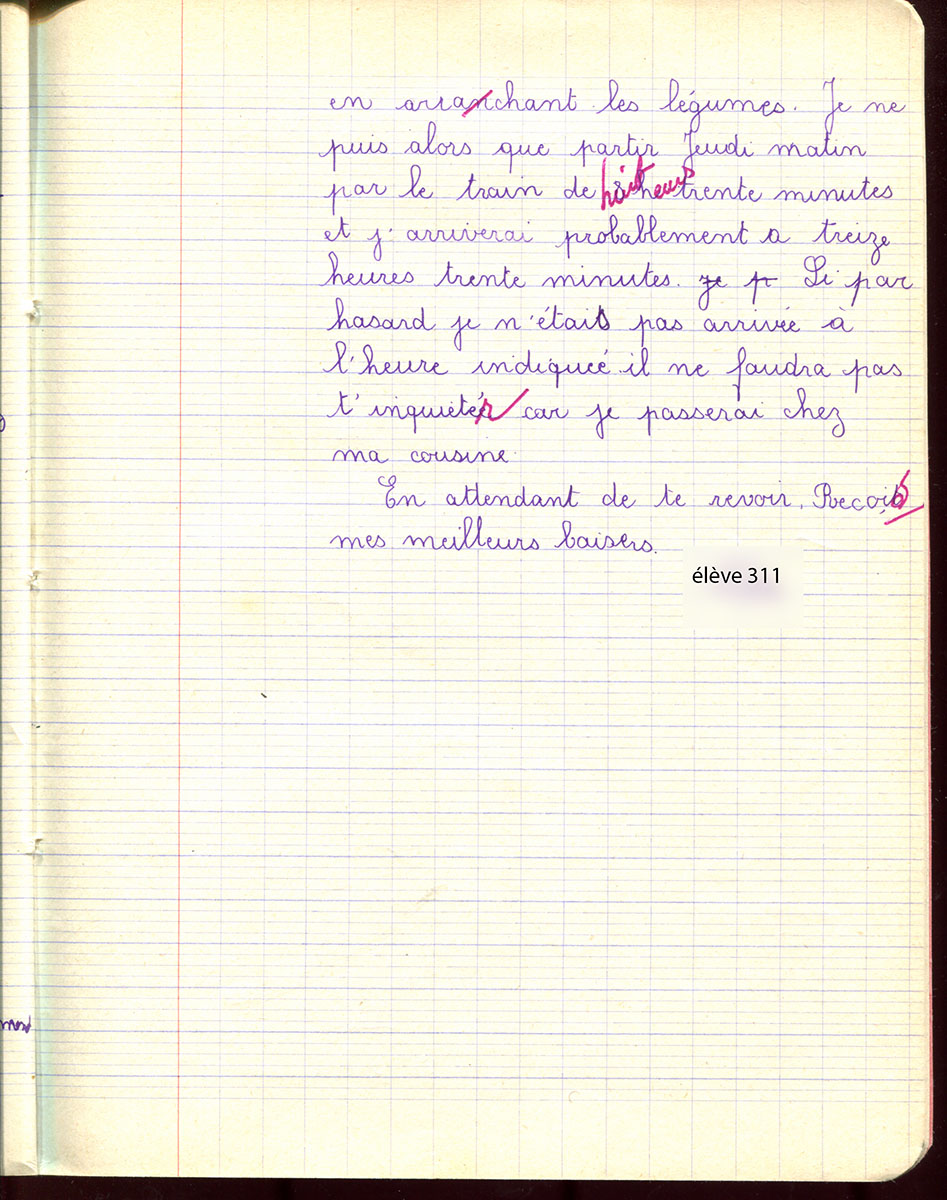 en arranchant les légumes. Je ne
puis alors que partir Jeudi matin
par le train de huit heures trente minutes
et j'arriverai probablement a treize
heures trente minutes. je p Si par
hasard je n'étais pas arrivée à
l'heure indiqueé il ne faudra pas
t'inquiéter car je passerai chez
ma cousine.
En attendant de te revoir, Reçois
mes meilleurs baisers.
élève 311